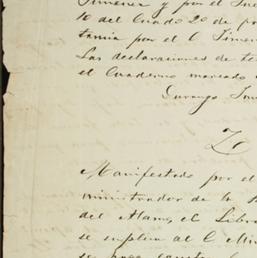 Jimenez y por el Jue
10 del Cuad.o 2.o de po
tancia por el C. Jimen
Las declaraciones de te
el Cuaderno marcado
Durango Jun
Manifestado por el
ministrador de la
del Alamo, el Libra
se suplica al C. Min